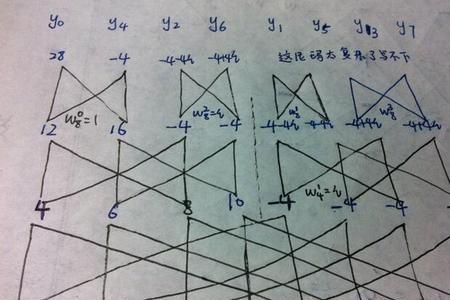 y₀ y₄ y₂ y₆ y₁ y₅ y₃ y₇
28 -4 -4-4i -4+4i 这层码太复杂了写不下
W₈⁰=1 W₈²=i W₈¹ W₈³
12 16 -4 -4 -4-4i -4+4i -4+4i
W₄¹=i
4 6 8 10 -4 -4 -4